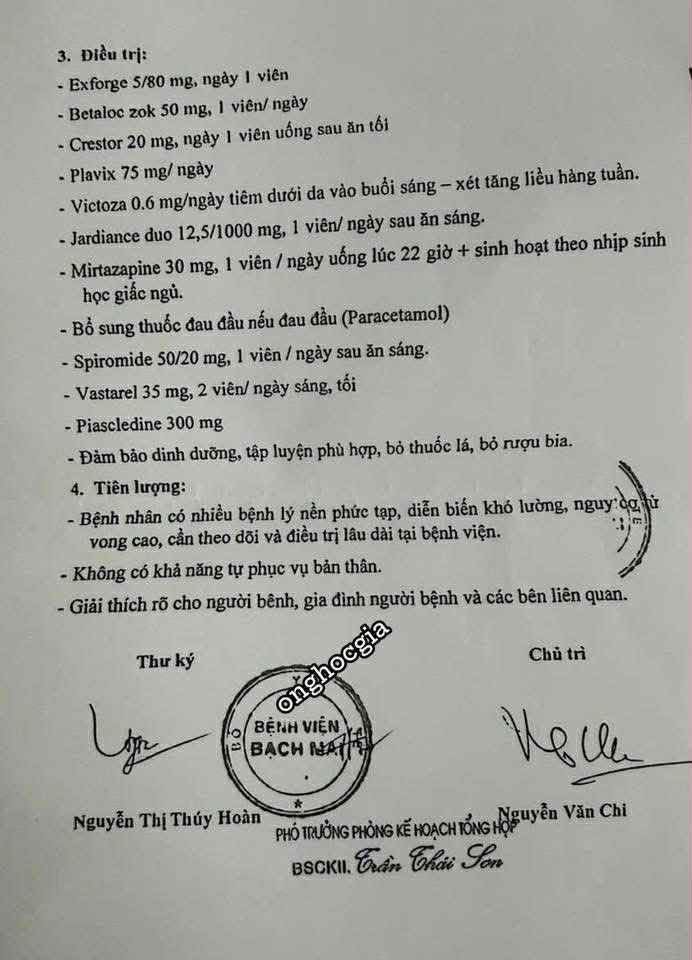 3. Điều trị:
- Exforge 5/80 mg, ngày 1 viên
- Betaloc zok 50 mg, 1 viên/ ngày
- Crestor 20 mg, ngày 1 viên uống sau ăn tối
- Plavix 75 mg/ ngày
- Victoza 0.6 mg/ngày tiêm dưới da vào buổi sáng – xét tăng liều hàng tuần.
- Jardiance duo 12,5/1000 mg, 1 viên/ ngày sau ăn sáng.
- Mirtazapine 30 mg, 1 viên / ngày uống lúc 22 giờ + sinh hoạt theo nhịp sinh
học giấc ngủ.
- Bổ sung thuốc đau đầu nếu đau đầu (Paracetamol)
- Spiromide 50/20 mg, 1 viên / ngày sau ăn sáng.
- Vastarel 35 mg, 2 viên/ ngày sáng, tối
- Piascledine 300 mg
- Đảm bảo dinh dưỡng, tập luyện phù hợp, bỏ thuốc lá, bỏ rượu bia.
4. Tiên lượng:
- Bệnh nhân có nhiều bệnh lý nền phức tạp, diễn biến khó lường, nguy cơ tử
vong cao, cần theo dõi và điều trị lâu dài tại bệnh viện.
- Không có khả năng tự phục vụ bản thân.
- Giải thích rõ cho người bênh, gia đình người bệnh và các bên liên quan.
Thư ký
Chủ trì
onghocgia
BỘ Y
BỆNH VIỆN
BẠCH MAI
Nguyễn Thị Thúy Hoàn
Nguyễn Văn Chi
PHÓ TRƯỞNG PHÒNG KẾ HOẠCH TỔNG HỢP
BSCKII. Trần Thái Sơn